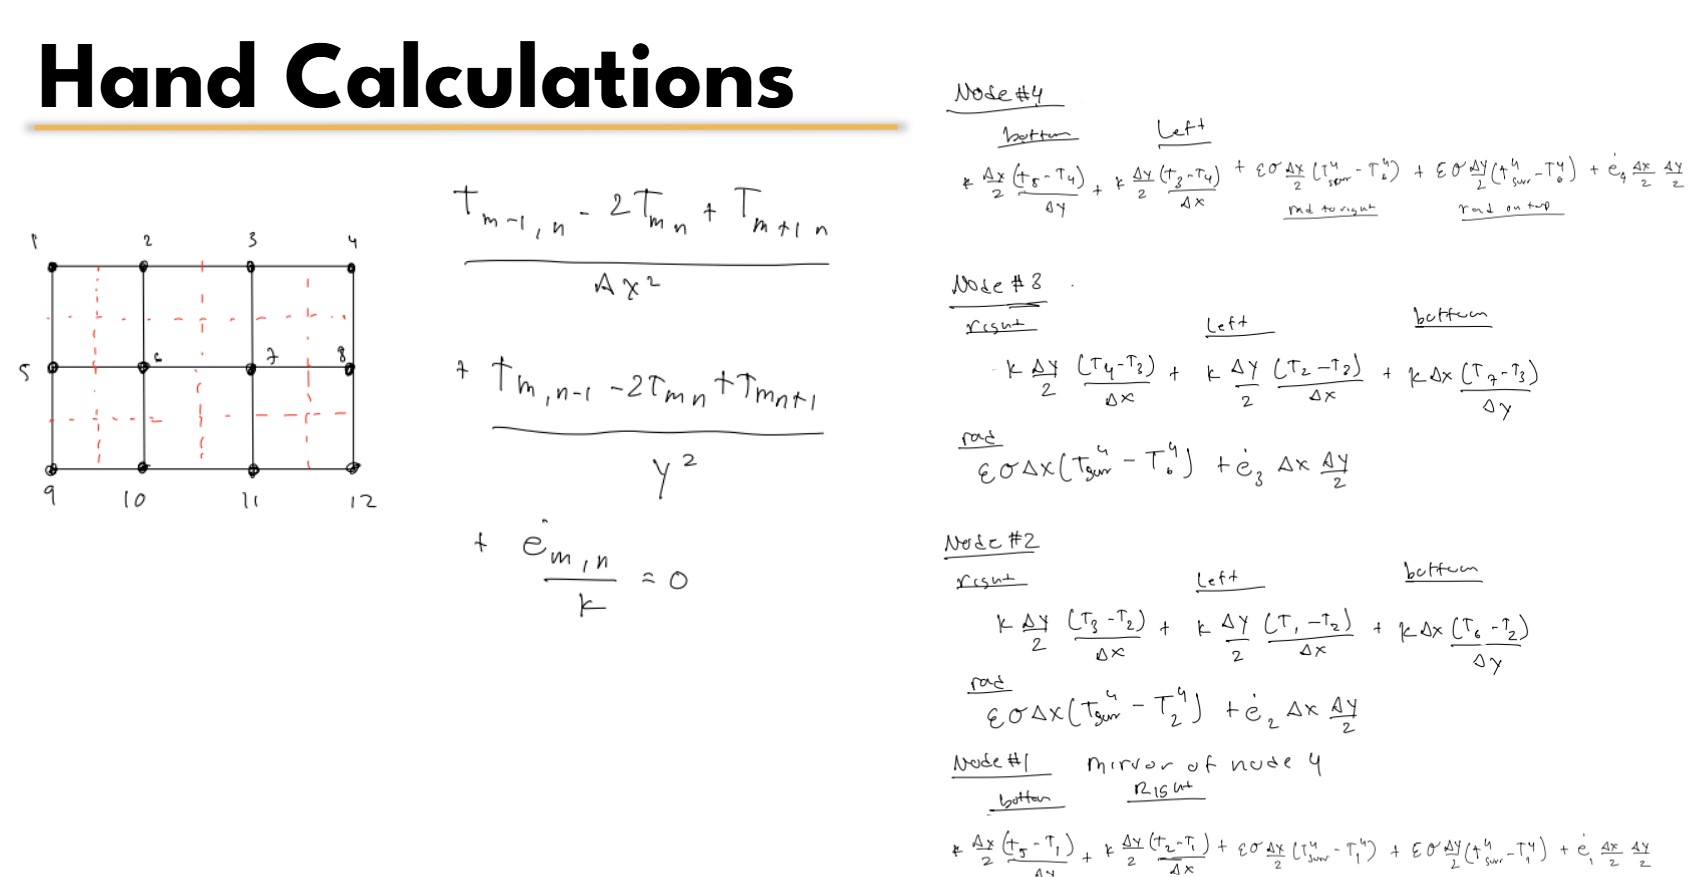 Hand Calculations
1 2 3 4
5 6 7 8
9 10 11 12
T_{m-1,n} - 2T_{mn} + T_{m+1 n}
Δx²
+ T_{m,n-1} - 2T_{mn} + T_{mn+1}
y²
+ ė_{m,n}
k = 0
Node #4
bottom Left
k Δx/2 (T₈-T₄)/Δy + k Δy/2 (T₃-T₄)/Δx + εσ Δx/2 (T⁴surr - T₀⁴) + εσ Δy/2 (T⁴surr - T₀⁴) + ė₄ Δx/2 Δy/2
rad to right rad on top
Node #3
right Left bottom
k Δy/2 (T₄-T₃)/Δx + k Δy/2 (T₂-T₃)/Δx + kΔx (T₇-T₃)/Δy
rad
εσΔx(T⁴surr - T₀⁴) + ė₃ Δx Δy/2
Node #2
right Left bottom
k Δy/2 (T₃-T₂)/Δx + k Δy/2 (T₁-T₂)/Δx + kΔx (T₆-T₂)/Δy
rad
εσΔx(T⁴surr - T₂⁴) + ė₂ Δx Δy/2
Node #1 mirror of node 4
bottom Right
k Δx/2 (T₅-T₁)/Δy + k Δy/2 (T₂-T₁)/Δx + εσ Δx/2 (T⁴surr - T₁⁴) + εσ Δy/2 (T⁴surr - T₁⁴) + ė₁ Δx/2 Δy/2